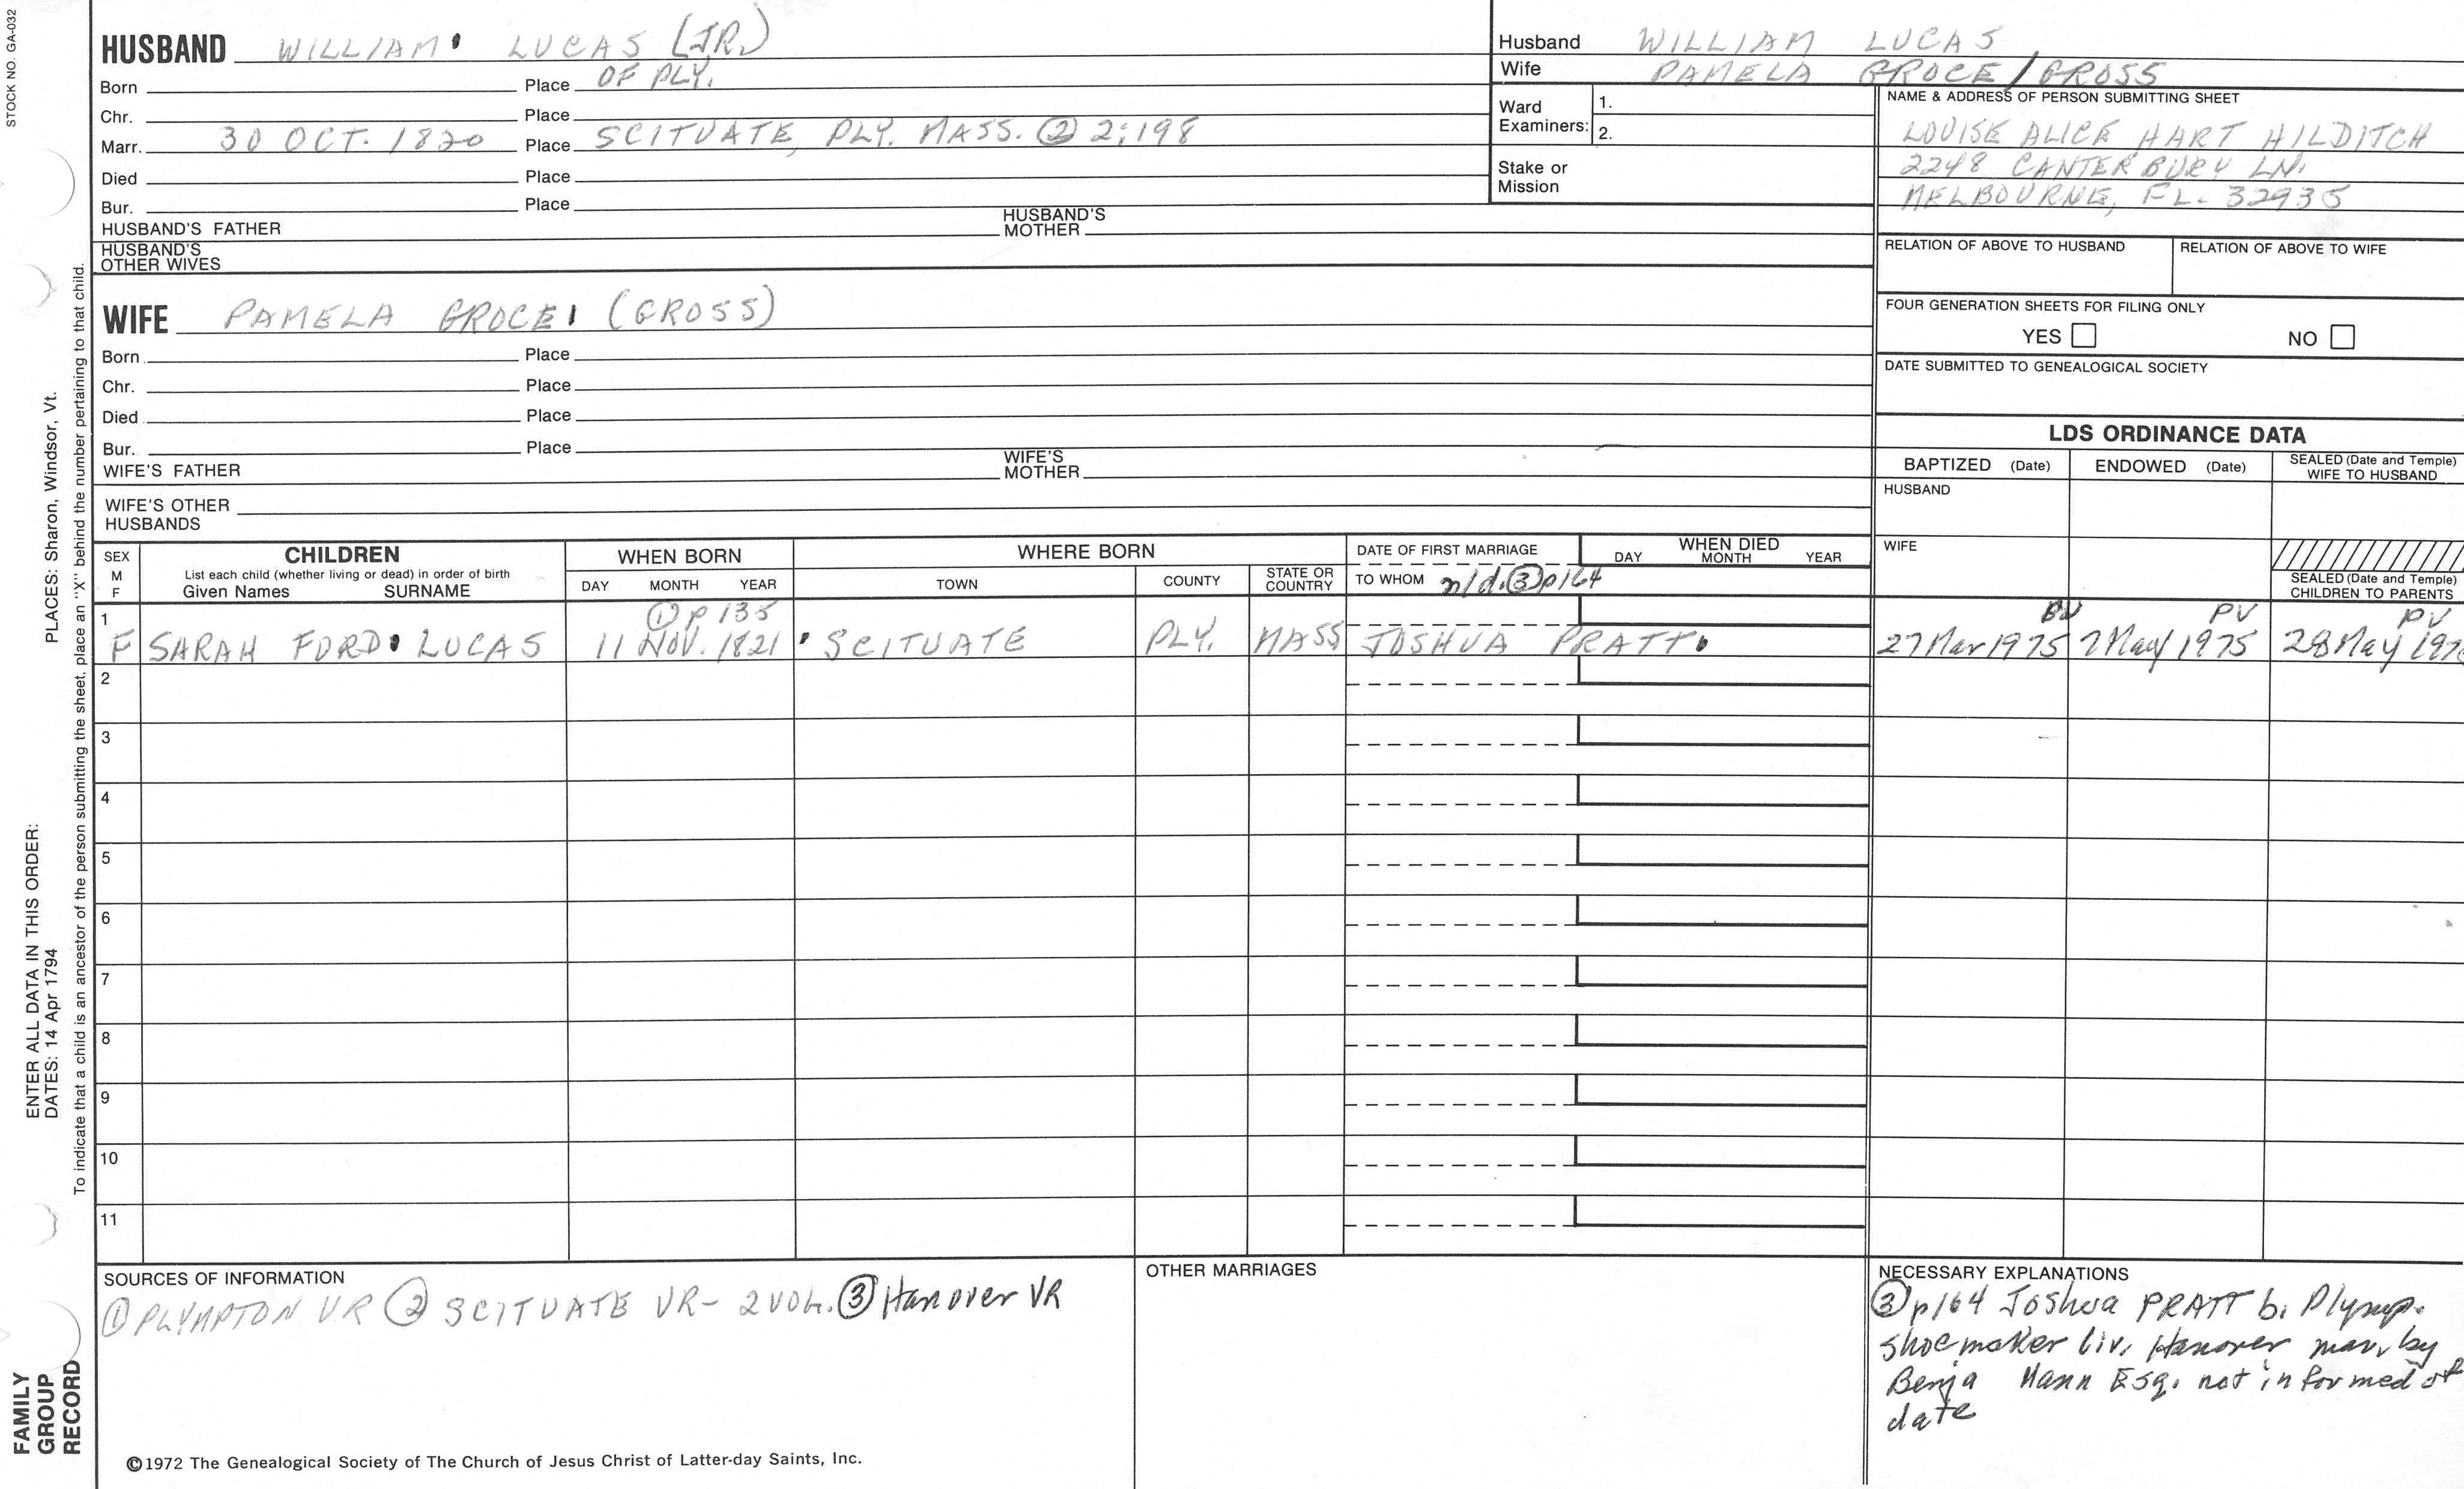 STOCK NO. GA-032
HUSBAND WILLIAM LUCAS (JR.)
Born Place OF PLY.
Chr. Place
Marr. 30 OCT. 1820 Place SCITUATE, PLY. MASS. ② 2:198
Died Place
Bur. Place
HUSBAND'S FATHER HUSBAND'S MOTHER
HUSBAND'S OTHER WIVES
Husband WILLIAM LUCAS
Wife PAMELA GROCE/GROSS
Ward Examiners: 1.
2.
Stake or Mission
NAME & ADDRESS OF PERSON SUBMITTING SHEET
LOUISE ALICE HART HILDITCH
2248 CANTERBURY LN.
MELBOURNE, FL. 32935
RELATION OF ABOVE TO HUSBAND RELATION OF ABOVE TO WIFE
FOUR GENERATION SHEETS FOR FILING ONLY
YES NO
DATE SUBMITTED TO GENEALOGICAL SOCIETY
WIFE PAMELA GROCE (GROSS)
Born Place
Chr. Place
Died Place
Bur. Place
WIFE'S FATHER WIFE'S MOTHER
WIFE'S OTHER HUSBANDS
LDS ORDINANCE DATA
BAPTIZED (Date) ENDOWED (Date) SEALED (Date and Temple) WIFE TO HUSBAND
HUSBAND
WIFE
SEALED (Date and Temple) CHILDREN TO PARENTS
SEX M F
CHILDREN
List each child (whether living or dead) in order of birth
Given Names SURNAME
WHEN BORN
DAY MONTH YEAR
WHERE BORN
TOWN COUNTY STATE OR COUNTRY
DATE OF FIRST MARRIAGE
TO WHOM n/d. ③ p164
WHEN DIED
DAY MONTH YEAR
① p 135
BV PV PV
1 F SARAH FORD LUCAS 11 NOV. 1821 SCITUATE PLY. MASS JOSHUA PRATT 27 Mar 1975 7 May 1975 28 May
2
3
4
5
6
7
8
9
10
11
SOURCES OF INFORMATION
① PLYMPTON VR ② SCITUATE VR - 2 VOL. ③ Hanover VR
OTHER MARRIAGES
NECESSARY EXPLANATIONS
③ p164 Joshua PRATT b. Plymp.
shoemaker liv. Hanover mar. by
Benja Mann Esq. not informed of
date
©1972 The Genealogical Society of The Church of Jesus Christ of Latter-day Saints, Inc.
FAMILY GROUP RECORD
ENTER ALL DATA IN THIS ORDER:
DATES: 14 Apr 1794 PLACES: Sharon, Windsor, Vt.
To indicate that a child is an ancestor of the person submitting the sheet, place an "X" behind the number pertaining to that child.